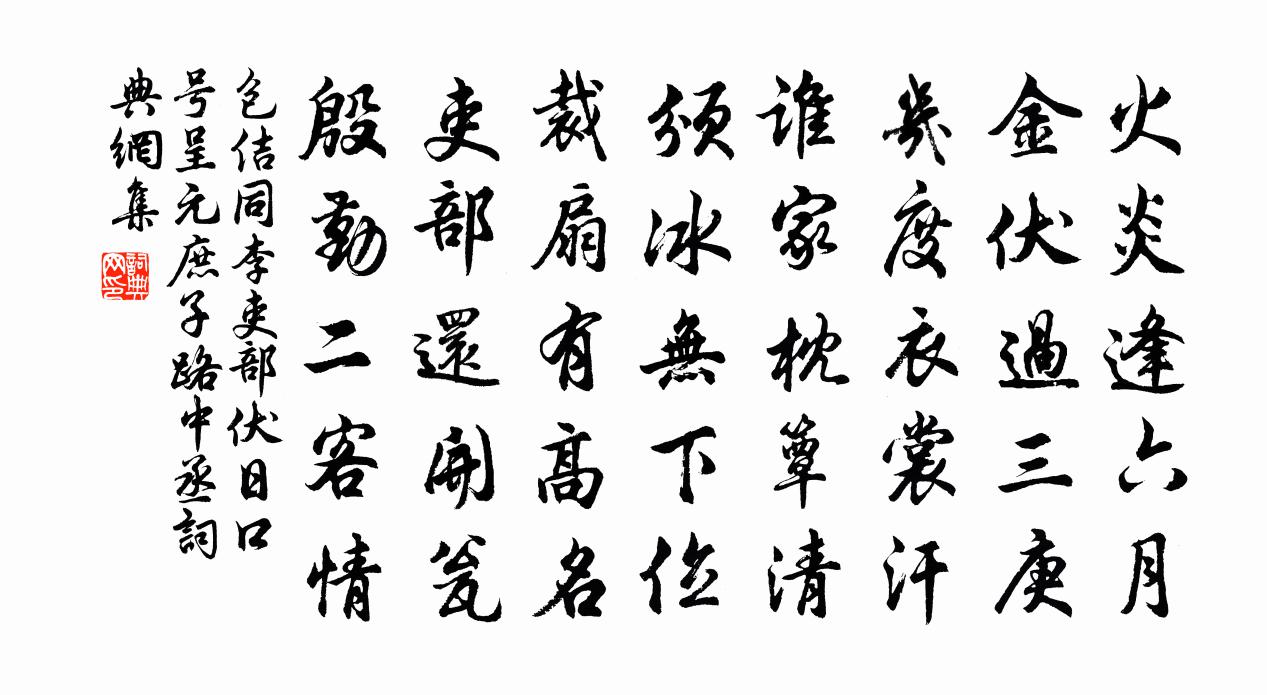 火炎逢六月
金伏過三庚
幾度衣裳汗
誰家枕簟清
頒冰無下位
裁扇有高名
吏部還開瓮
殷勤二客情
包佶同李吏部伏日口
号呈元庶子路中丞詞
典網集
詞典网印